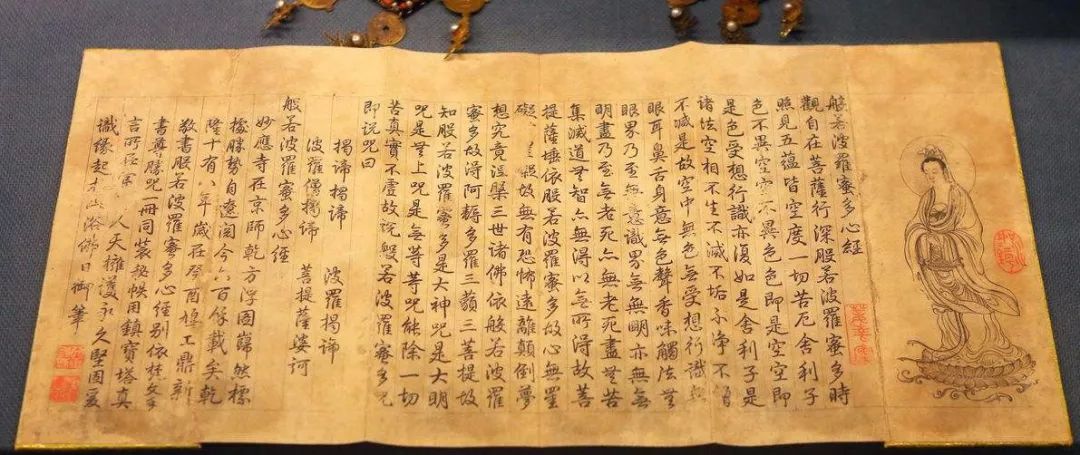 般若波羅蜜多心經
觀自在菩薩行深般若波羅蜜多時
照見五蘊皆空度一切苦厄舍利子
色不異空空不異色色即是空空即
是色受想行識亦復如是舍利子是
諸法空相不生不滅不垢不淨不
不減是故空中無色無受想行識
眼耳鼻舌身意無色聲香味觸法無
眼界乃至無意識界無無明亦無無
明盡乃至無老死亦無老死盡無苦
集滅道無智亦無得以無所得故菩
提薩埵依般若波羅蜜多故心無罣
礙 礙故無有恐怖遠離顛倒夢
想究竟涅槃三世諸佛依般若波羅
蜜多故得阿耨多羅三藐三菩提故
知般若波羅蜜多是大神咒是大明
咒是無上咒是無等等咒能除一切
苦真實不虛故說般若波羅蜜多咒
即說咒曰
揭諦揭諦 波羅揭諦
波羅僧揭諦 菩提薩婆訶
般若波羅蜜多心經
妙應寺在京師乾方浮圖巋然標
據勝勢自遼閱今六百餘載矣乾
隆十有八年歲在癸酉鳩工鼎新
敬書般若波羅蜜多心經別依梵文
書尊勝咒一冊同裝秘帙用鎮寶塔真
言所在 人天擁護永久堅固爰
識緣起 浴佛日御筆